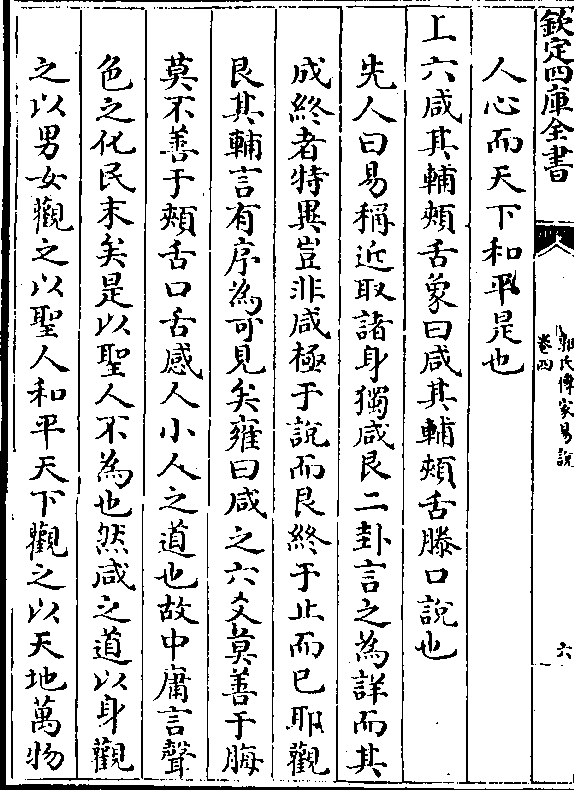 欽定四庫全書
郭氏傳家易說
卷四
六
人心而天下和平是也
上六咸其輔頰舌象曰咸其輔頰舌滕口說也
先人曰易稱近取諸身獨咸艮二卦言之為詳而其
成終者特異豈非咸極于說而艮終于止而已耶觀
艮其輔言有序為可見矣雍曰咸之六爻莫善于脢
莫不善于頰舌口舌感人小人之道也故中庸言聲
色之化民末矣是以聖人不為也然咸之道以身觀
之以男女觀之以聖人和平天下觀之以天地萬物